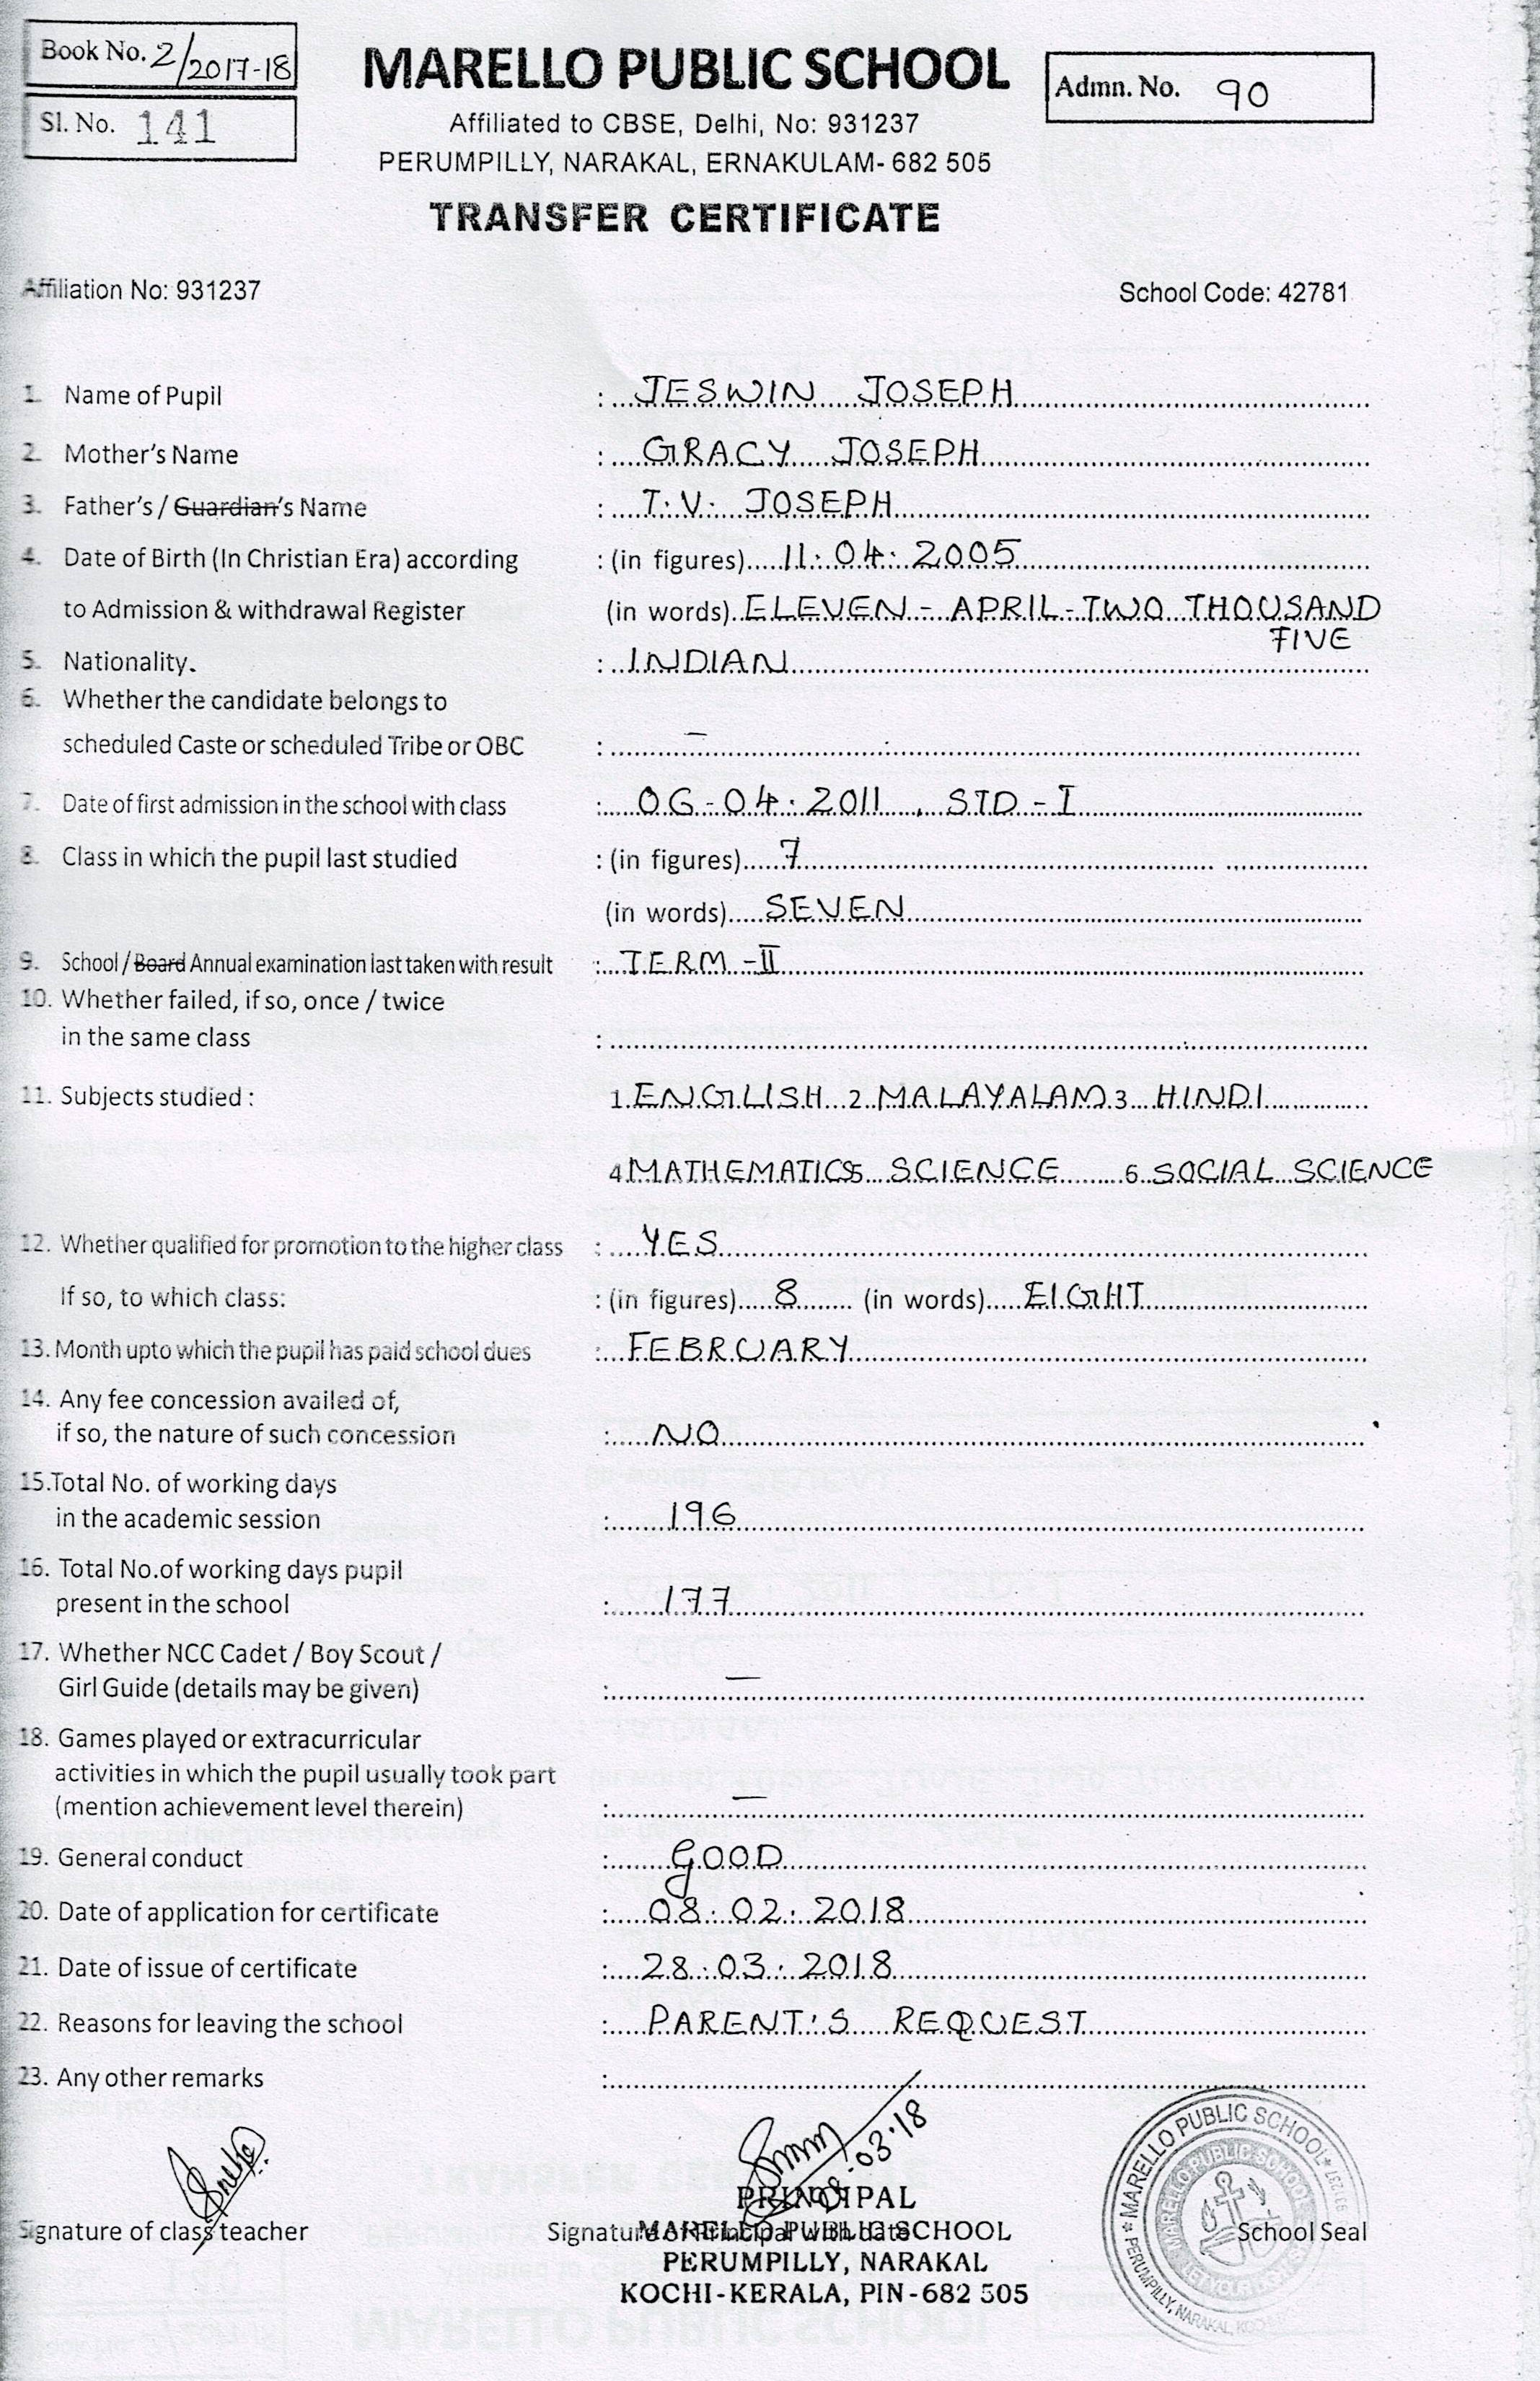 Book No. 2/2017-18
Sl. No. 141
MARELLO PUBLIC SCHOOL
Admn. No. 90
Affiliated to CBSE, Delhi, No: 931237
PERUMPILLY, NARAKAL, ERNAKULAM- 682 505
TRANSFER CERTIFICATE
Affiliation No: 931237 School Code: 42781
1. Name of Pupil : JESWIN JOSEPH
2. Mother's Name : GRACY JOSEPH
3. Father's / Guardian's Name : T.V. JOSEPH
4. Date of Birth (In Christian Era) according : (in figures) 11.04.2005
to Admission & withdrawal Register (in words) ELEVEN - APRIL - TWO THOUSAND
FIVE
5. Nationality. : INDIAN
6. Whether the candidate belongs to
scheduled Caste or scheduled Tribe or OBC : —
7. Date of first admission in the school with class : 06-04.2011, STD - I
8. Class in which the pupil last studied : (in figures) 7
(in words) SEVEN
9. School / Board Annual examination last taken with result : TERM - II
10. Whether failed, if so, once / twice
in the same class :
11. Subjects studied : 1. ENGLISH 2. MALAYALAM 3 HINDI
4 MATHEMATICS 5 SCIENCE 6. SOCIAL SCIENCE
12. Whether qualified for promotion to the higher class : YES
If so, to which class: : (in figures) 8 (in words) EIGHT
13. Month upto which the pupil has paid school dues : FEBRUARY
14. Any fee concession availed of,
if so, the nature of such concession : NO
15. Total No. of working days
in the academic session : 196
16. Total No.of working days pupil
present in the school : 177
17. Whether NCC Cadet / Boy Scout /
Girl Guide (details may be given) : —
18. Games played or extracurricular
activities in which the pupil usually took part
(mention achievement level therein) : —
19. General conduct : GOOD
20. Date of application for certificate : 08.02.2018
21. Date of issue of certificate : 28.03.2018
22. Reasons for leaving the school : PARENT'S REQUEST
23. Any other remarks :
PRINCIPAL
Signature of class teacher Signature of Principal with date School Seal
MARELLO PUBLIC SCHOOL
PERUMPILLY, NARAKAL
KOCHI-KERALA, PIN-682 505
MARELLO PUBLIC SCHOOL
PERUMPILLY, NARAKAL
MARELLO PUBLIC SCHOOL